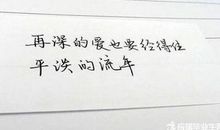 再深的爱也要经得住
平淡的流年